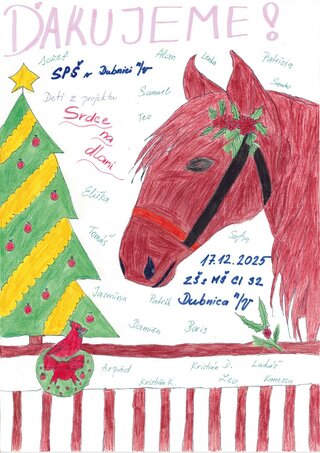 ĎAKUJEME!
Jozef
Alan
Leila
Patrícia
SPŠ v Dubnici n/V
Samko
Deti z projektu
Samuel
Srdce
Teo
na
dlani
Eliška
Tomáš
Sofia
17.12.2025
ZŠ s MŠ CI 32
Jasmína
Patrik
Dubnica n/V
Damian
Boris
Arpád
Kristián D.
Lukáš
Kristián K.
Leo
Vanessa